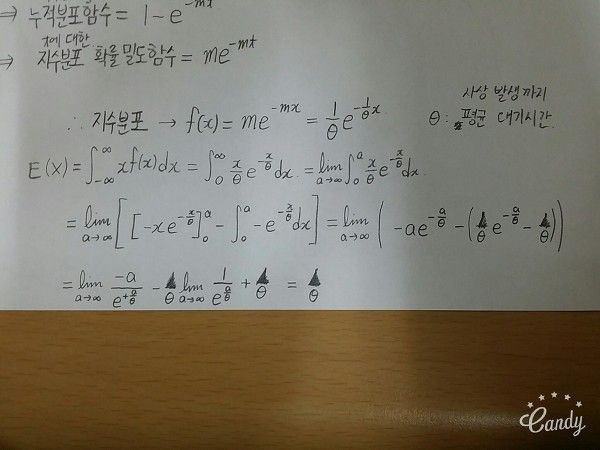 ⇒ 누적분포함수 = 1 - e^{-mt}
t에 대한
⇒ 지수분포 확률밀도함수 = me^{-mt}
사상 발생까지
∴ 지수분포 → f(x) = me^{-mx} = \frac{1}{θ}e^{-\frac{1}{θ}x} θ: 평균 대기시간.
E(X) = ∫_{-∞}^{∞} xf(x)dx = ∫_0^∞ \frac{x}{θ}e^{-\frac{x}{θ}}dx = \lim_{a→∞} ∫_0^a \frac{x}{θ}e^{-\frac{x}{θ}}dx.
= \lim_{a→∞} [ [-xe^{-\frac{x}{θ}}]_0^a - ∫_0^a -e^{-\frac{x}{θ}}dx ] = \lim_{a→∞} ( -ae^{-\frac{a}{θ}} - (θe^{-\frac{a}{θ}} - θ))
= \lim_{a→∞} \frac{-a}{e^{+\frac{a}{θ}}} - θ \lim_{a→∞} \frac{1}{e^{\frac{a}{θ}}} + θ = θ
Candy